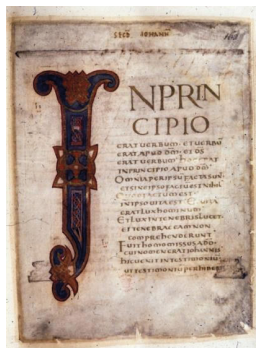 SECD IOHANN
INPRIN
CIPIO
ERATUERBUM·ETUERBŪ
ERATAPUDDM̄·ETDS̄
ERATUERBUM·
INPRINCIPIOAPUDDM̄
OMNIAPERIPSŪFACTASUN
ETSINEIPSOFACTŪESTNIHIL
FACTUMEST
INIPSOUITAEST·ETUITA
ERATLUXHOMINUM
ETLUXINTENEBRISLUCET
ETTENEBRAEEAMNON
COMPREHENDERUNT
FUITHOMOMISSUSADO
CUINOMENERATIOHANNIS
HICUENITINTESTIMONIŪ
UTTESTIMONIŪPERHIBER